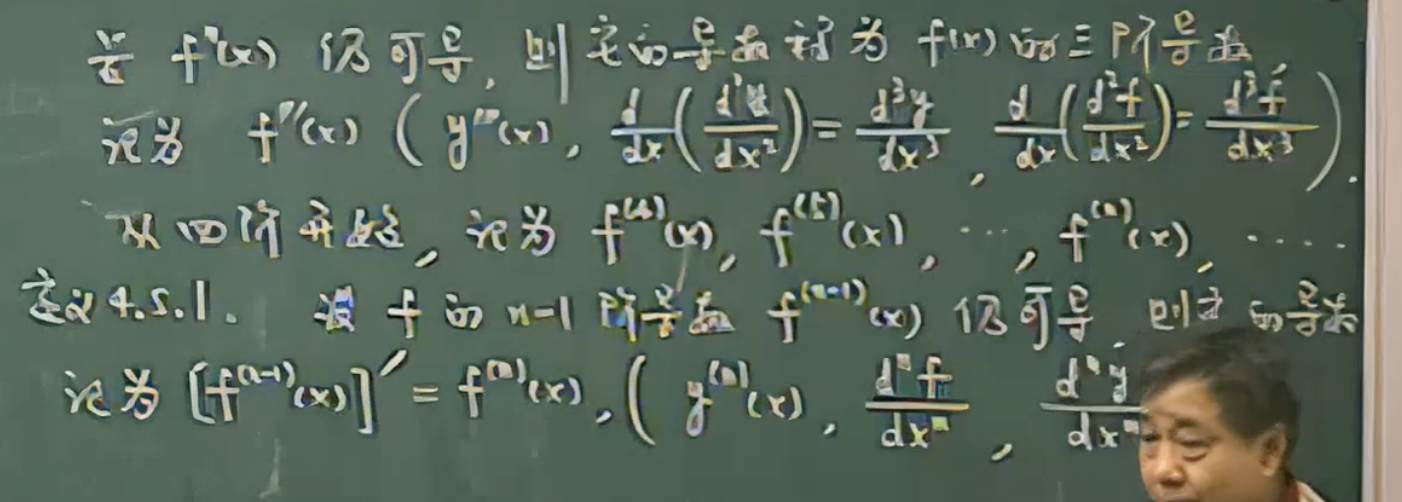 若 f''(x) 仍可导, 则它的导数称为 f(x) 的三阶导数
记为 f'''(x) ( y'''(x), d/dx(d²y/dx²) = d³y/dx³, d/dx(d²f/dx²) = d³f/dx³ ).
从四阶开始, 记为 f⁽⁴⁾(x), f⁽⁵⁾(x), …, f⁽ⁿ⁾(x), ……
定义4.5.1. 设 f 的 n-1 阶导数 f⁽ⁿ⁻¹⁾(x) 仍可导 则它的导数
记为 [f⁽ⁿ⁻¹⁾(x)]' = f⁽ⁿ⁾(x), ( y⁽ⁿ⁾(x), dⁿf/dxⁿ, dⁿy/dxⁿ